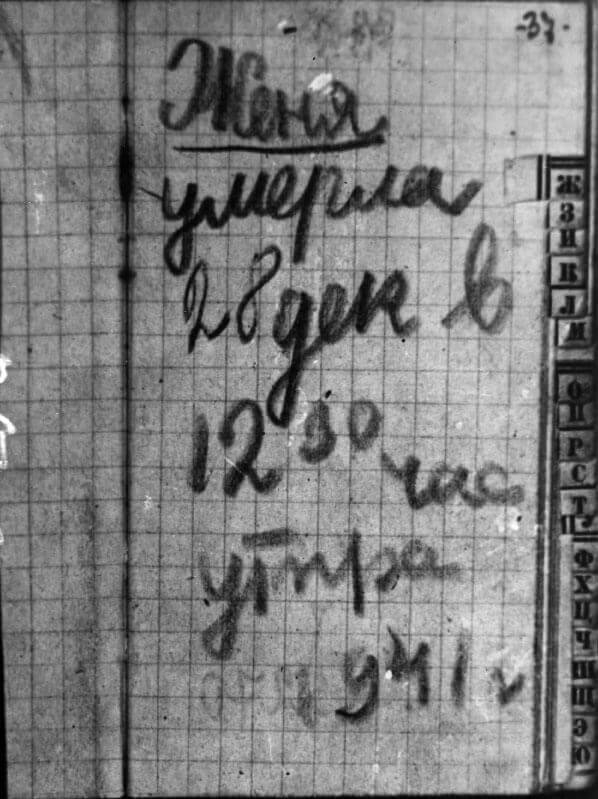 -37-
Женя
умерла
28 дек в
12 30 час
утра
1941 г
Ж
З
И
К
Л
М
О
П
Р
С
Т
Ф
Х
Ц
Ч
Ш
Щ
Э
Ю